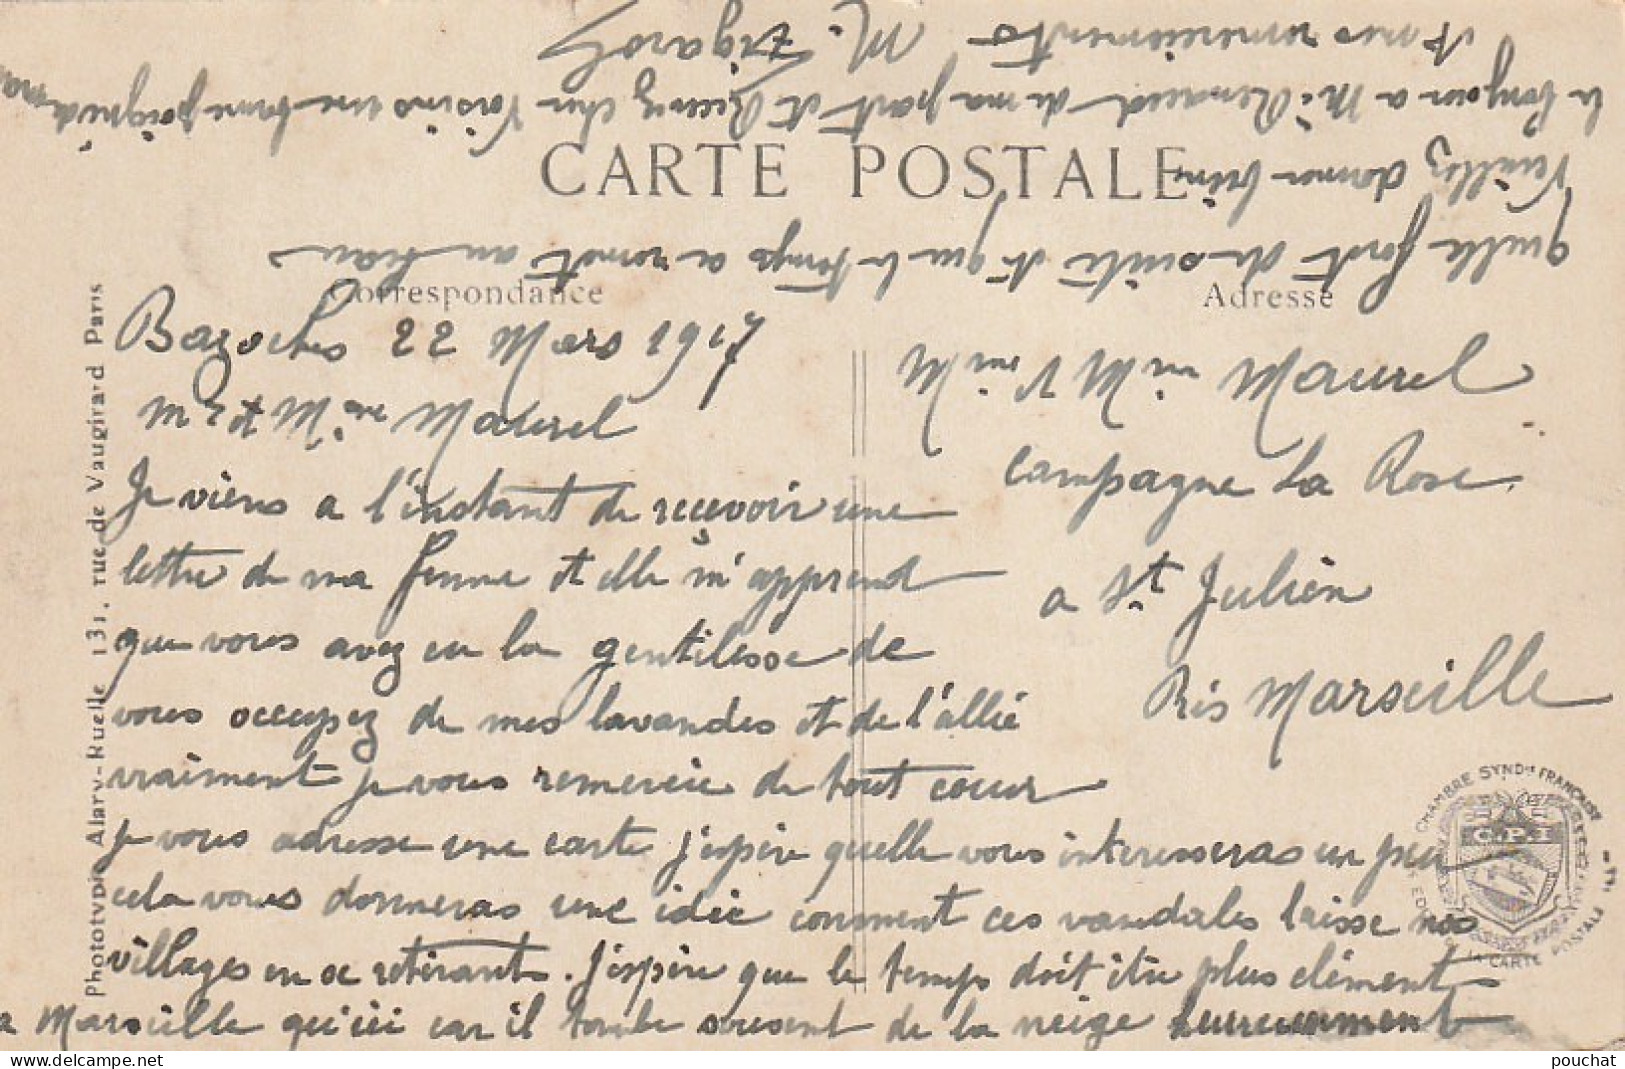 CARTE POSTALE
Correspondance
Adresse
Bazoches 22 Mars 1917
Mr et Mme Maurel
Je viens a l'instant de recevoir une
lettre de ma femme et elle m'apprend
que vous avez eu la gentilesse de
vous occupez de mes lavandes et de l'allié
vraiment je vous remercie de tout coeur
je vous adresse une carte j'espère quelle vous interesseras un peu
cela vous donneras une idée comment ces vandales laisse nos
villages en se retirants. J'espère que le temps doit être plus clément
a Marseille qu'ici car il tombe souvent de la neige heureusement
quelle font de suite et que le temps a remet au beau
Veuillez donner bien
le bonjour a Mr Renaud de ma part et Recevez cher Voisins une bonne poignée de main
et mes remerciements
M. Figarol
Maurel
Campagne La Rose
a St Julien
Près Marseille
Phototypie Alary-Ruelle 131, rue de Vaugirard Paris
CHAMBRE SYNDle FRANÇAISE
C.P.I
LA CARTE POSTALE
pouchat